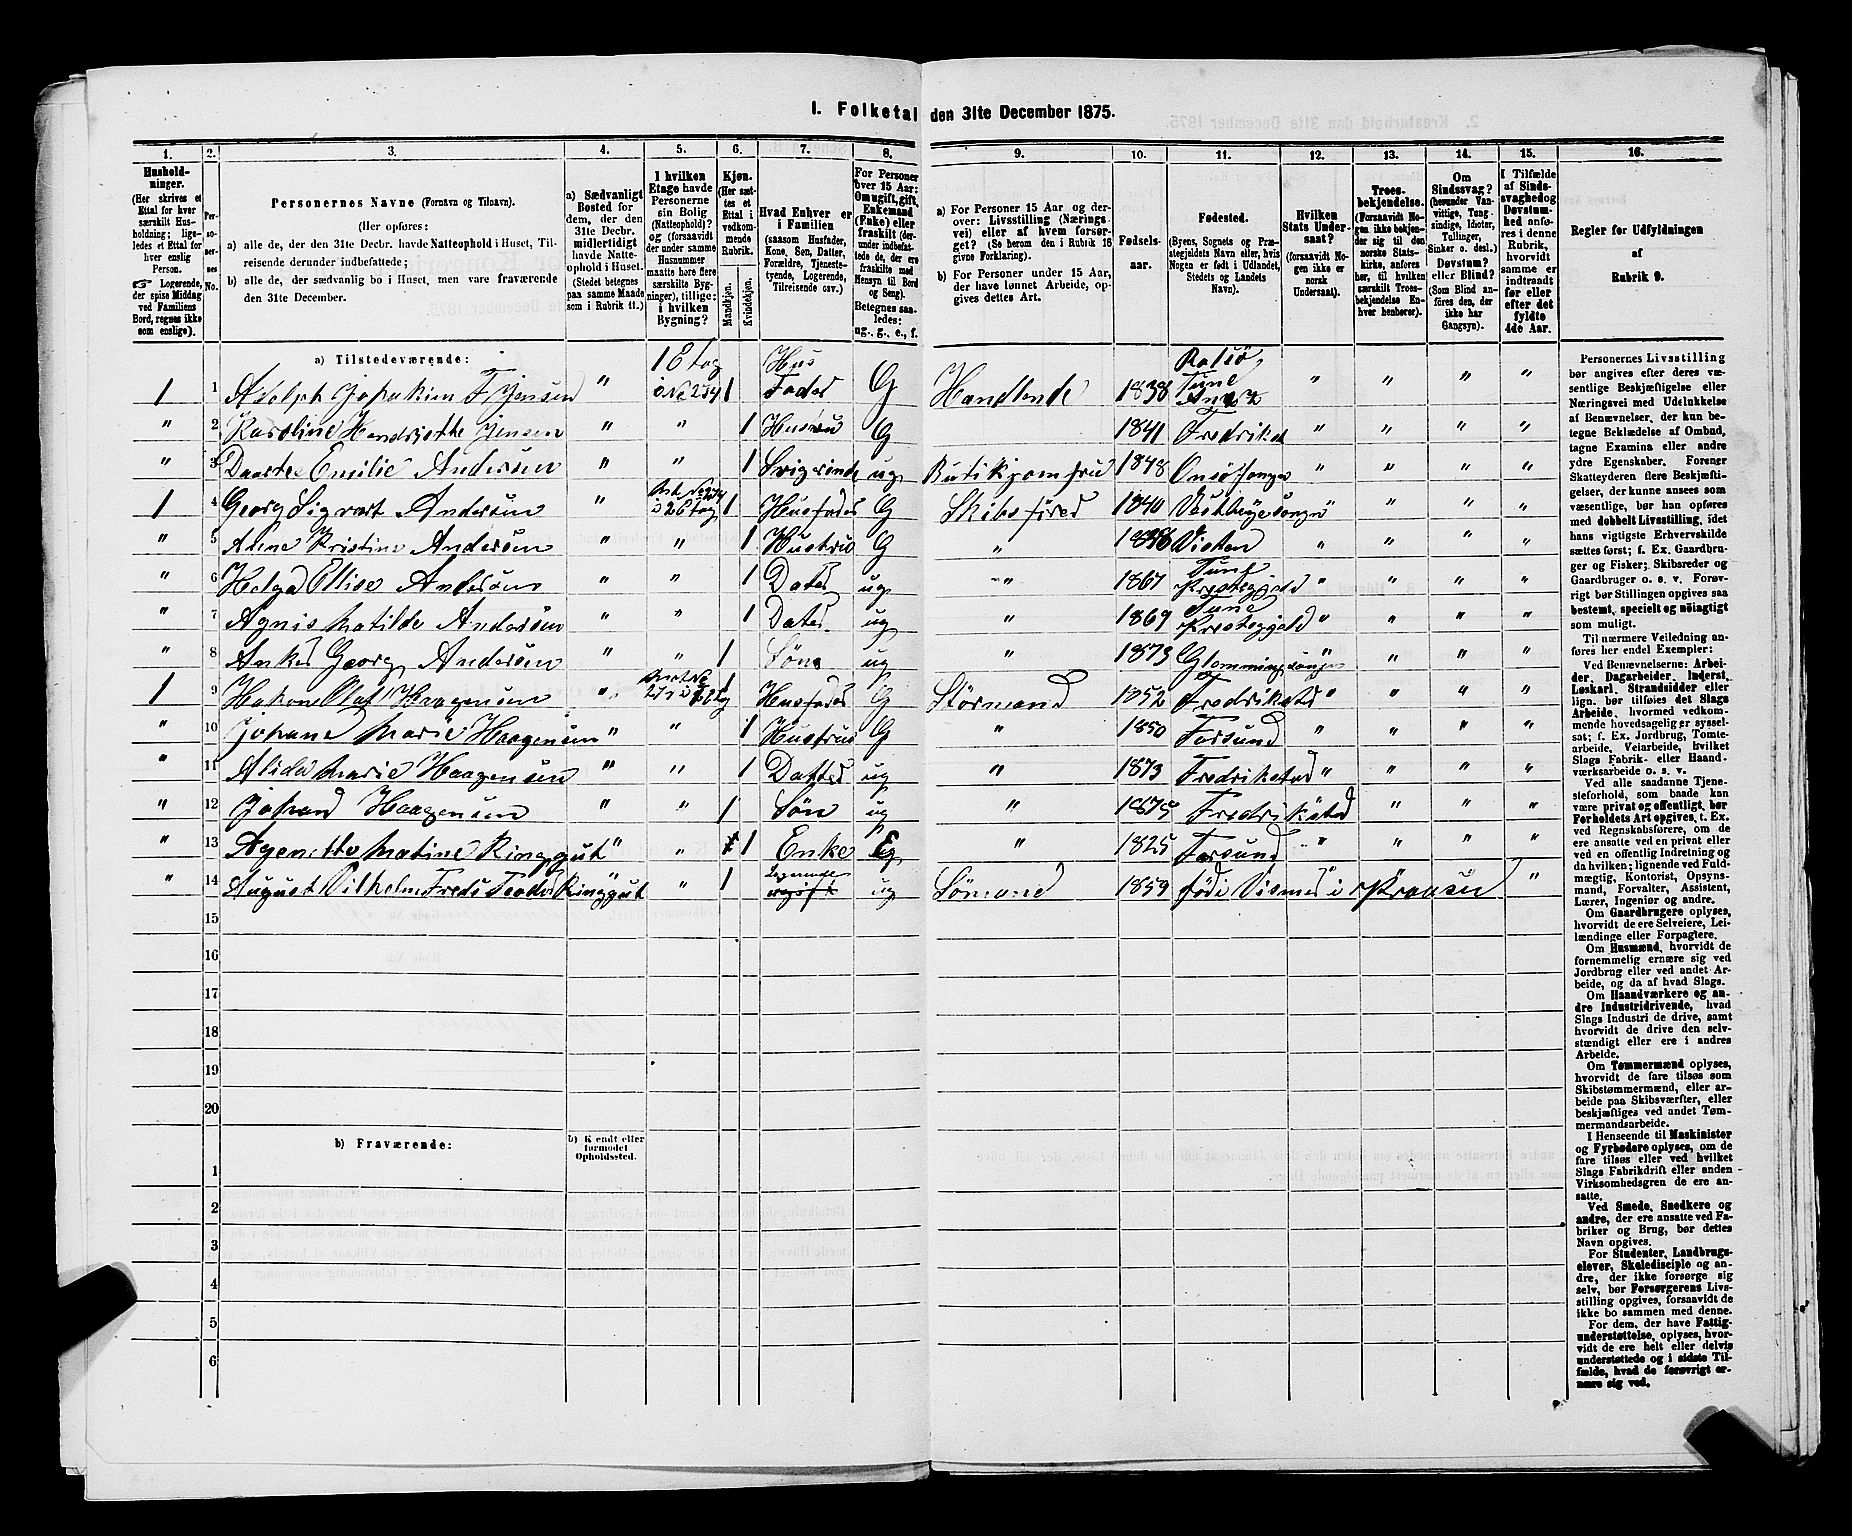 1. Folketal den 31te December 1875.
1. 2. 3. 4. 5. 6. 7. 8. 9. 10. 11. 12. 13. 14. 15. 16.
Husholdninger.
(Her skrives et
Ettal for hver
særskilt Husholdning;
ligeledes et Ettal for
hver enslig
Person.
☞ Logerende,
der spise Middag
ved Familiens
Bord, regnes ikke
som enslige).
Personernes No.
Personernes Navne (Fornavn og Tilnavn).
(Her opføres:
a) alle de, der den 31te Decbr. havde Natteophold i Huset, Tilreisende derunder indbefattede;
b) alle de, der sædvanlig bo i Huset, men vare fraværende
den 31te December.
a) Sædvanligt
Bosted for
dem, der den
31te Decbr.
midlertidigt
havde Natteophold
i Huset.
(Stedet betegnes
paa samme Maade
som i Rubrik 11.)
I hvilken
Etage havde
Personerne
sin Bolig
(Natteophold)?
og (forsaavidt
der under samme
Husnummer
maatte høre flere
særskilte Bygninger),
tillige:
i hvilken
Bygning?
Kjøn.
(Her sættes
et Ettal i
vedkommende
Rubrik.
Mandkjøn.
Kvindekjøn.
Hvad Enhver er
i Familien
(saasom Husfader,
Kone, Søn, Datter,
Forældre, Tjenestetyende,
Logerende,
Tilreisende osv.)
For Personer
over 15 Aar:
Om ugift, gift,
Enkemand
(Enke) eller
fraskilt (derunder
indbefattede
de, der ere
fraskilte med
Hensyn til Bord
og Seng).
Betegnes saaledes:
ug., g., e., f.
a) For Personer 15 Aar og derover:
Livsstilling (Næringsvei)
eller af hvem forsørget?
(Se herom den i Rubrik 16
givne Forklaring).
b) For Personer under 15 Aar,
der have lønnet Arbeide, opgives
dettes Art.
Fødselsaar.
Fødested.
(Byens, Sognets og Præstegjeldets
Navn eller, hvis
Nogen er født i Udlandet,
Stedets og Landets
Navn).
Hvilken
Stats Undersaat?
(forsaavidt Nogen
ikke er
norsk
Undersaat).
Troesbekjendelse.
(Forsaavidt Nogen
ikke bekjender
sig til den
norske Statskirke,
anføres
her, til hvilken
særskilt Troesbekjendelse
Enhver henhører).
Om
Sindssvag?
(herunder Vanvittige,
Tungsindige, Idioter,
Tullinger,
Sinker o. desl.)
Døvstum?
eller Blind?
(Som Blind anføres
den, der
ikke har
Gangsyn).
I Tilfælde
af Sindssvaghed og
Døvstumhed
anføres
i denne
Rubrik,
hvorvidt
samme er
indtraadt
før eller
efter det
fyldte
4de Aar.
Regler for Udfyldningen
af
Rubrik 9.
a) Tilstedeværende:
1 1 Adolph Jophakim F Jensen " 1 Etag i No 254 1 Hus Fader G Handlende 1838 Rolsö, Tune " " " "
" 2 Karoline Hendrjette Jensen " " 1 Hustru G 1841 Fredriksta " " " "
" 3 Daartee Emilie Andersen " " 1 Svigerinde ug Butikjomfru 1848 Onsö Songn " " " "
1 4 Georg Sigvart Andersen " 1 Husfader G Skibsförer 1840 " " " "
" 5 Anne Kristine Andersen " " 1 Hustru G " 1838 " " " "
" 6 Helga Ellise Andersen " " 1 Dater ug " 1867 Tune Prestegjeld " " " "
" 7 Agnis Matilde Andersen " " 1 Dater ug " 1869 Tune Prestegjeld " " " "
" 8 Anker Georg Andersen " " 1 Søn ug " 1873 Glemmingsongn " " " "
1 9 Hakon Olaf Haagensen " 1 Husfader G Störmand 1852 Fredrikstad " " " "
" 10 Johane Marie Haagensen " " 1 Hustru G " 1850 Forsund " " " "
" 11 Alida Marie Haagensen " " 1 Datter ug " 1873 Fredrikstad " " " "
" 12 Johan Haagensen " " 1 Søn ug " 1875 Fredrikstad " " "
" 13 Agenette Matine Ringgut " " 1 Enke E " 1825 Forsund " " " "
" 14 August Vilhelm Fredr Teodor Ringgut " " 1 Logerende ug Sömand 1859 födt Vismer i Preusen "
15
16
17
18
19
20
b) Fraværende:
b) Kjendt eller
formodet
Opholdssted.
1
2
3
4
5
6
Personernes Livsstilling
bør angives efter deres væsentlige
Beskjæftigelse eller
Næringsvei med Udelukkelse
af Benævnelser, der kun betegne
Beklædelse af Ombud,
tagne Examina eller andre
ydre Egenskaber. Forener
Skatteyderen flere Beskjæftigelser,
der kunne ansees som
væsentlige, bør han opføres
med dobbelt Livsstilling, idet
hans vigtigste Erhvervskilde
sættes først; f. Ex. Gaardbruger
og Fisker; Skibsreder og
Gaardbruger o. s. v. Forøvrigt
bør Stillingen opgives saa
bestemt, specielt og nøiagtigt
som muligt.
Til nærmere Veiledning anføres
her endel Exempler:
Ved Benævnelserne: Arbeider,
Dagarbeider, Inderst,
Løskarl, Strandsidder eller
lign. bør tilføies det Slags
Arbeide, hvormed vedkommende
hovedsagelig er sysselsat;
f. Ex. Jordbrug, Tomtearbeide,
Veiarbeide, hvilket
Slags Fabrik- eller Haandværksarbeide
o. s. v.
Ved alle saadanne Tjenesteforhold,
som baade kan
være privat og offentligt, bør
Forholdets Art opgives, t. Ex.
ved Regnskabsførere, om de
ere ansatte ved en privat eller
ved en offentlig Indretning og
da hvilken; lignende ved Fuldmægtig,
Kontorist, Opsynsmand,
Forvalter, Assistent,
Lærer, Ingeniør og andre.
Om Gaardbrugere oplyses,
hvorvidt de ere Selveiere, Leilændinge
eller Forpagtere.
Om Husmænd, hvorvidt de
fornemmelig ernære sig ved
Jordbrug eller ved andet Arbeide,
og da af hvad Slags.
Om Haandværkere og andre
Industridrivende, hvad
Slags Industri de drive, samt
hvorvidt de drive den selvstændigt
eller ere i andres
Arbeide.
Om Tømmermænd oplyses,
hvorvidt de fare tilsøs som
Skibstømmermænd, eller arbeide
paa Skibsværfter, eller
beskjæftiges ved andet Tømmermandsarbeide.
I Henseende til Maskinister
og Fyrbødere oplyses, om de
fare tilsøs eller ved hvilket
Slags Fabrikdrift eller anden
Virksomhedsgren de ere ansatte.
Ved Smede, Snedkere og
andre, der ere ansatte ved Fabriker
og Brug, bør dettes
Navn opgives.
For Studenter, Landbrugselever,
Skoledisciple og andre,
der ikke forsørge sig
selv, bør Forsørgerens Livsstilling
opgives, forsaavidt de
ikke bo sammen med denne.
For dem, der have Fattigunderstøttelse,
oplyses, hvorvidt
de ere helt eller delvis
understøttede og i sidste Tilfælde,
hvad de forøvrigt ernære
sig ved.